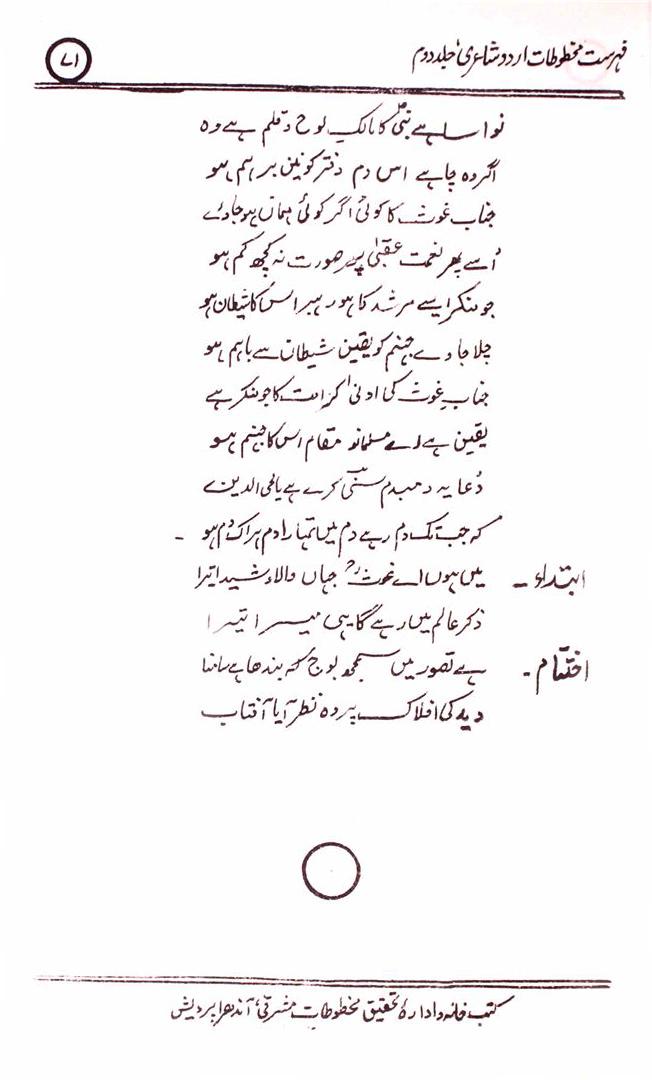 فہرست مخطوطات اردو شاعری، جلد دوم
۷۱
نواسا ہے نبیؐ کا مالکِ لوح و قلم ہے وہ
اگر وہ چاہے اس دم دفتر کونین برہم ہو
جناب غوث کا کوئی اگر کوئی مہماں ہو جاوے
اُسے پھر نعمت عقبیٰ پھر صورت نہ کچھ کم ہو
جو منکر ایسے مرشد کا ہو رہبر اس کا شیطان ہو
چلا جاوے جہنم کو یقین شیطان سے باہم ہو
جناب غوث کی ادنیٰ کرامت کا جو منکر ہے
یقین ہے اے مسلمانو مقام اس کا جہنم ہو
دُعا یہ دمبدم سنیؔ کرے ہے یا محی الدین
کہ جب تک دم رہے دم میں تمہارا دم ہر اک دم ہو ۔
ابتداء ۔ میں ہوں اے غوثؒ جہاں والا و شیدا تیرا
ذکر عالم میں رہے گا یہی میرا تیرا
اختتام ۔ ہے تصور میں سمجھ بوج کہ بندھا ہے سانتا
دید کی افلاک پردہ نظر آیا آفتاب
کتب خانہ و ادارۂ تحقیق مخطوطات مشرقی، آندھرا پردیش